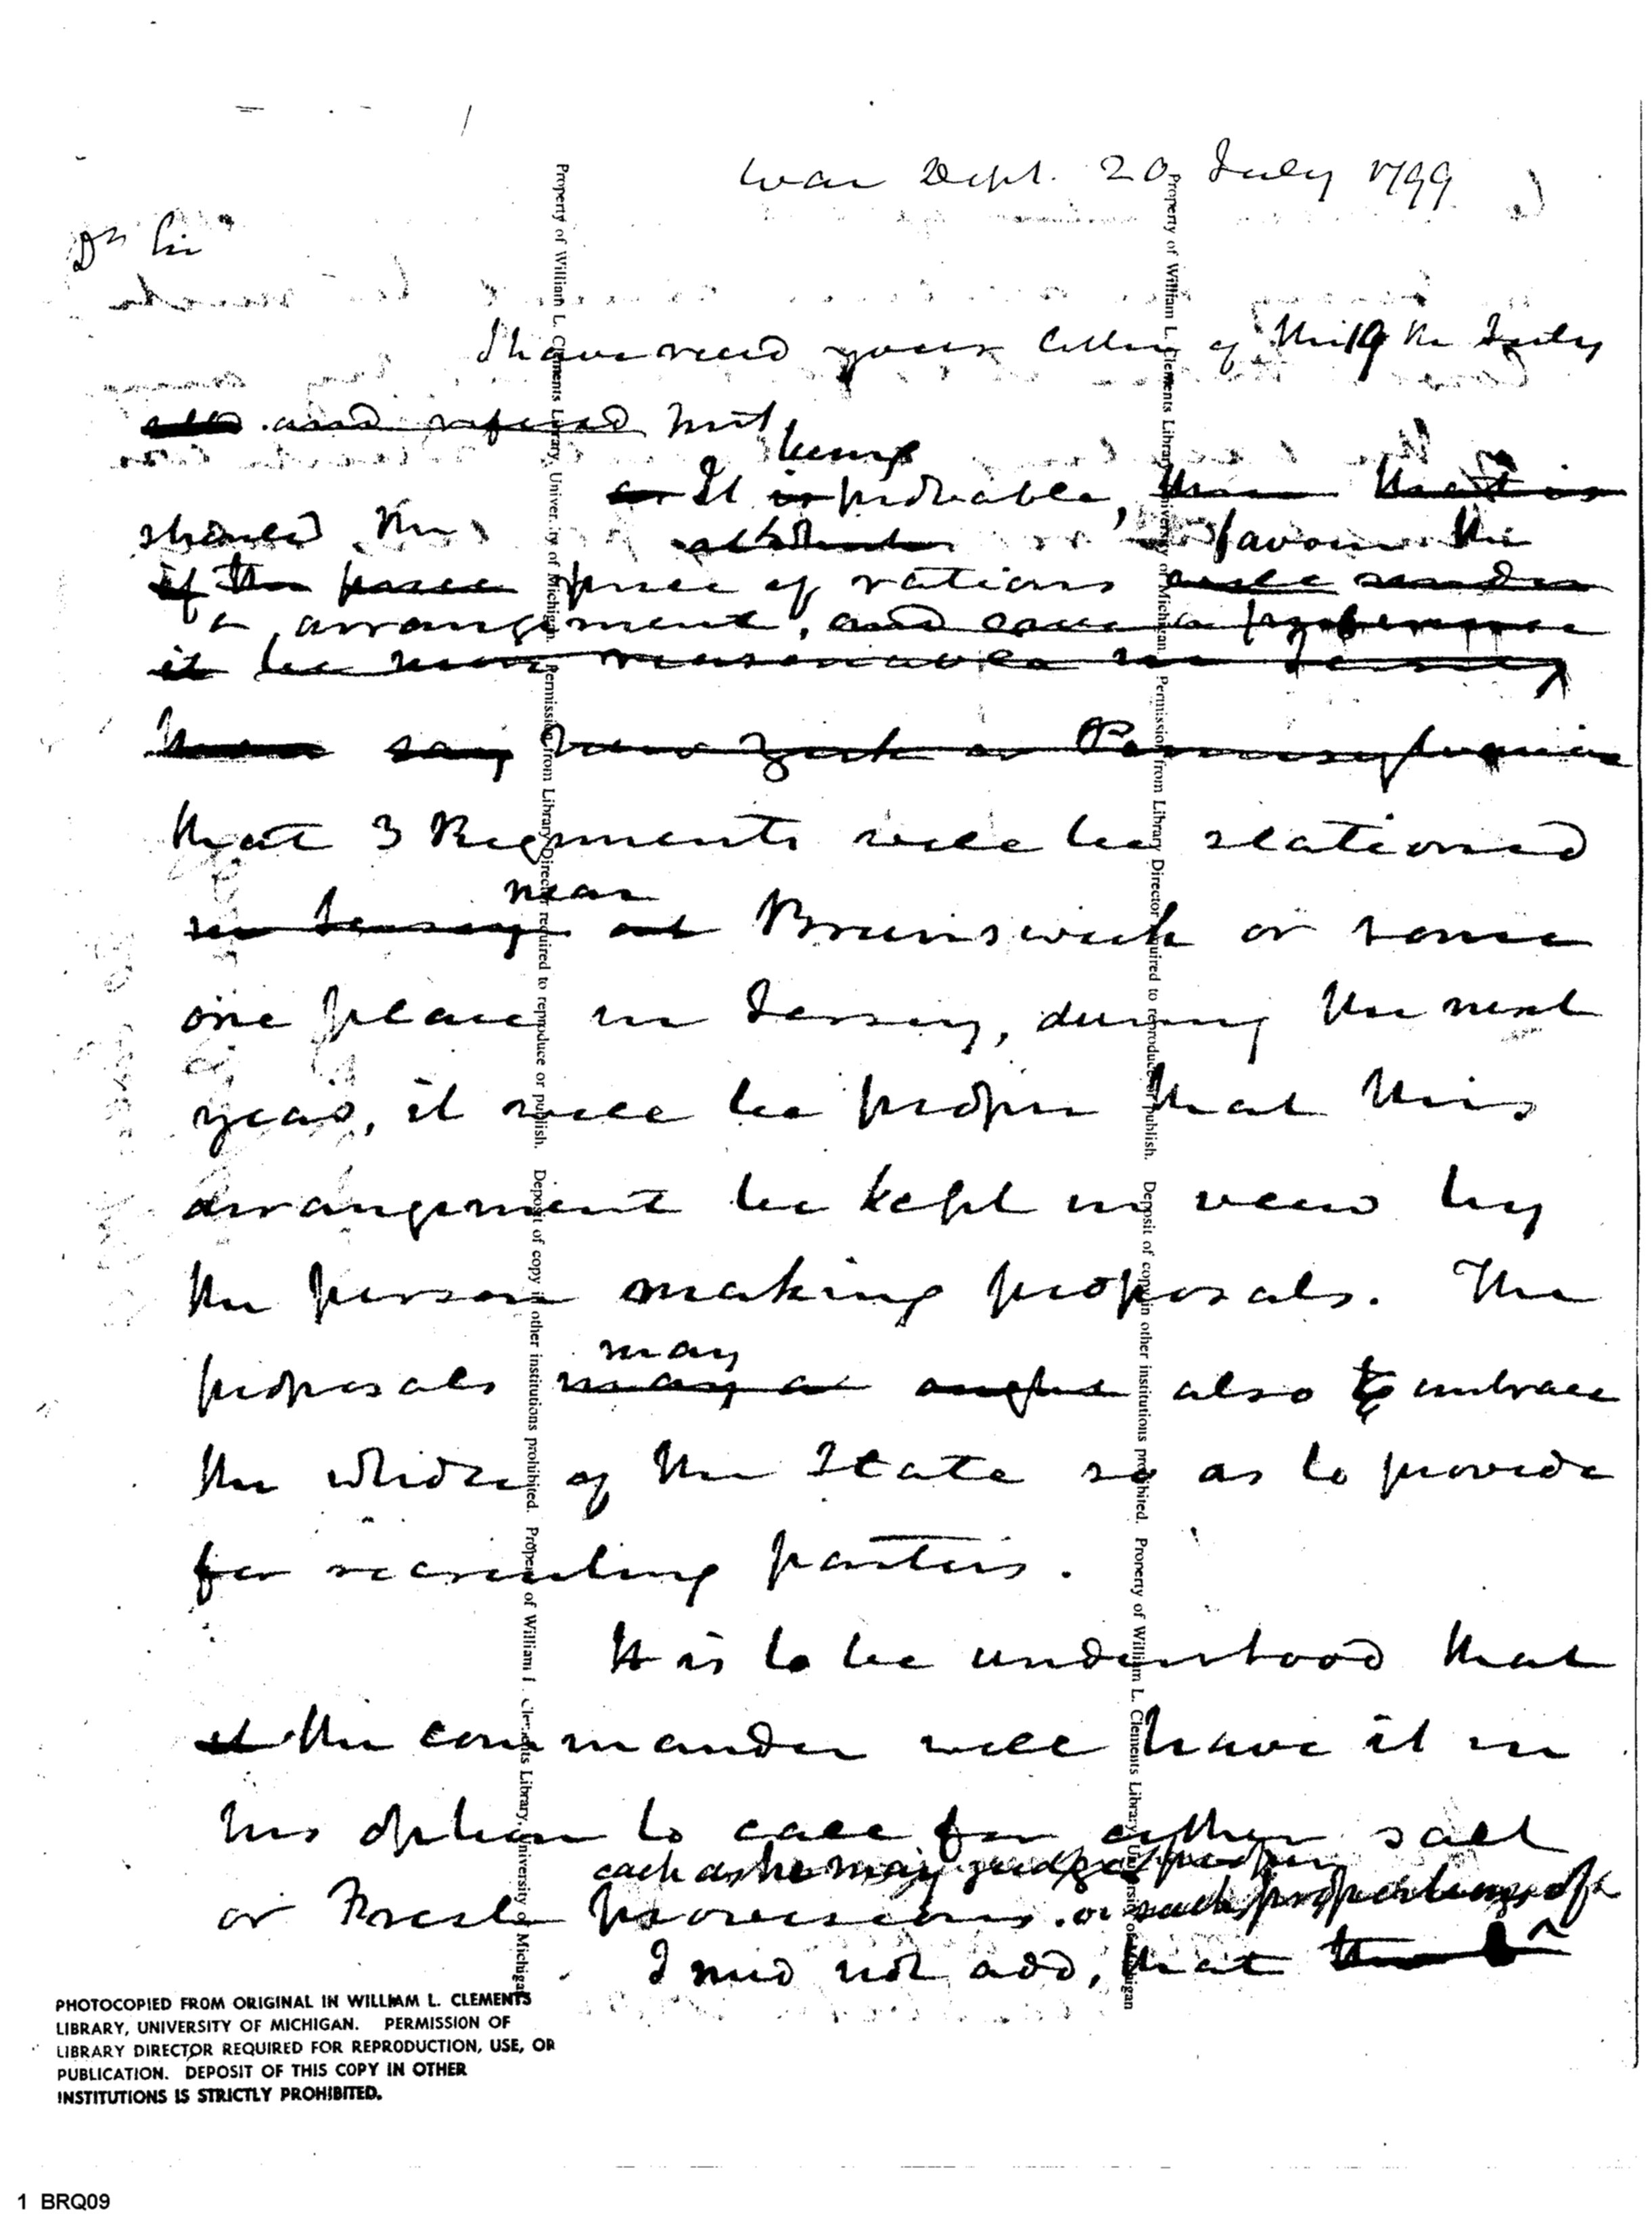 War Dept. 20 July 1799
Dr Sir
I have recd your letter of the 19 th July
and refered inst
being
as It is probable, than that is
should the favour the
if the price price of rations will under
arrangement, and
it be more reasonable in Jersey
than say New York or Pennsylvania
that 3 Regiments will be stationed
near
in Jersey at Brunswick or some
one place in Jersey, during the next
year, it will be proper that this
arrangement be kept in view by
the person making proposals. The
may
proposals may or ought also to embrace
the whole of the State so as to provide
for recruiting parties.
It is to be understood that
it the commander will have it in
his option to call for either salt
each as he may judge proper
or Fresh provisions. or such proportions of
I need not add, that the
Property of William L. Clements Library, University of Michigan. Permission from Library Director required to reproduce or publish. Deposit of copy in other institutions prohibited. Property of William L. Clements Library, University of Michigan
Property of William L. Clements Library, University of Michigan. Permission from Library Director required to reproduce or publish. Deposit of copy in other institutions prohibited. Property of William L. Clements Library, University of Michigan
PHOTOCOPIED FROM ORIGINAL IN WILLIAM L. CLEMENTS
LIBRARY, UNIVERSITY OF MICHIGAN. PERMISSION OF
LIBRARY DIRECTOR REQUIRED FOR REPRODUCTION, USE, OR
PUBLICATION. DEPOSIT OF THIS COPY IN OTHER
INSTITUTIONS IS STRICTLY PROHIBITED.
1 BRQ09